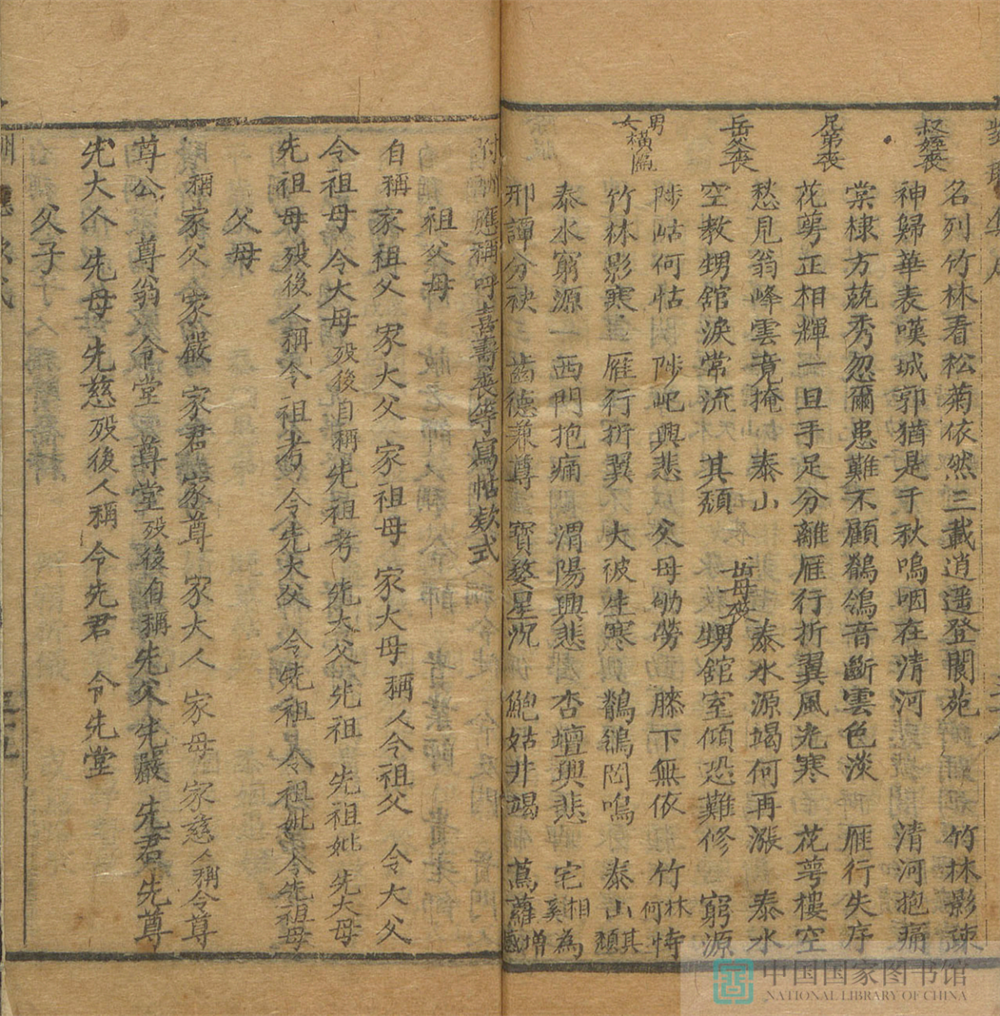 叔姪喪
名列竹林看松菊依然三載逍遥登閬苑 竹林影疎
神歸華表嘆城郭猶是千秋嗚咽在清河 清河抱痛
兄弟喪
棠棣方兢秀忽爾患難不顧鶺鴒音斷雲色淡 雁行失序
花萼正相輝一旦手足分離雁行折翼風光寒 花萼樓空
岳父喪
愁見翁峰雲竟掩 泰山其頹
岳母喪
泰水源竭何再漲 泰水窮源
空教甥舘淚常流
甥舘室傾恐難修
男女橫扁
陟岵何怙 陟屺興悲 父母劬勞 膝下無依 竹林何恃
竹林影寒 雁行折翼 大被生寒 鶺鴒罔鳴 泰山其頹
泰水窮源 西門抱痛 渭陽興悲 杏壇興悲 宅相奚為
邢譚分袂 齒德兼尊 寳婺星沉 鮑姑井竭 蔦蘿增感
附酬應稱呼喜壽喪等寫帖欵式
祖父母
自稱家祖父 家大父 家祖母 家大母 稱人令祖父 令大父
令祖母 令大母 殁後自稱先祖考 先大父 先祖 先祖妣 先大母
先祖母 殁後人稱令祖考 令先大父 令先祖 令祖妣 令先祖母
父母
稱家父 家嚴 家君 家尊 家大人 家母 家慈 人稱令尊
尊公 尊翁 令堂 尊堂 殁後自稱先父 先嚴 先君 先尊
先大人 先母 先慈 殁後人稱令先君 令先堂
父子
中国国家图书馆
NATIONAL LIBRARY OF CHINA